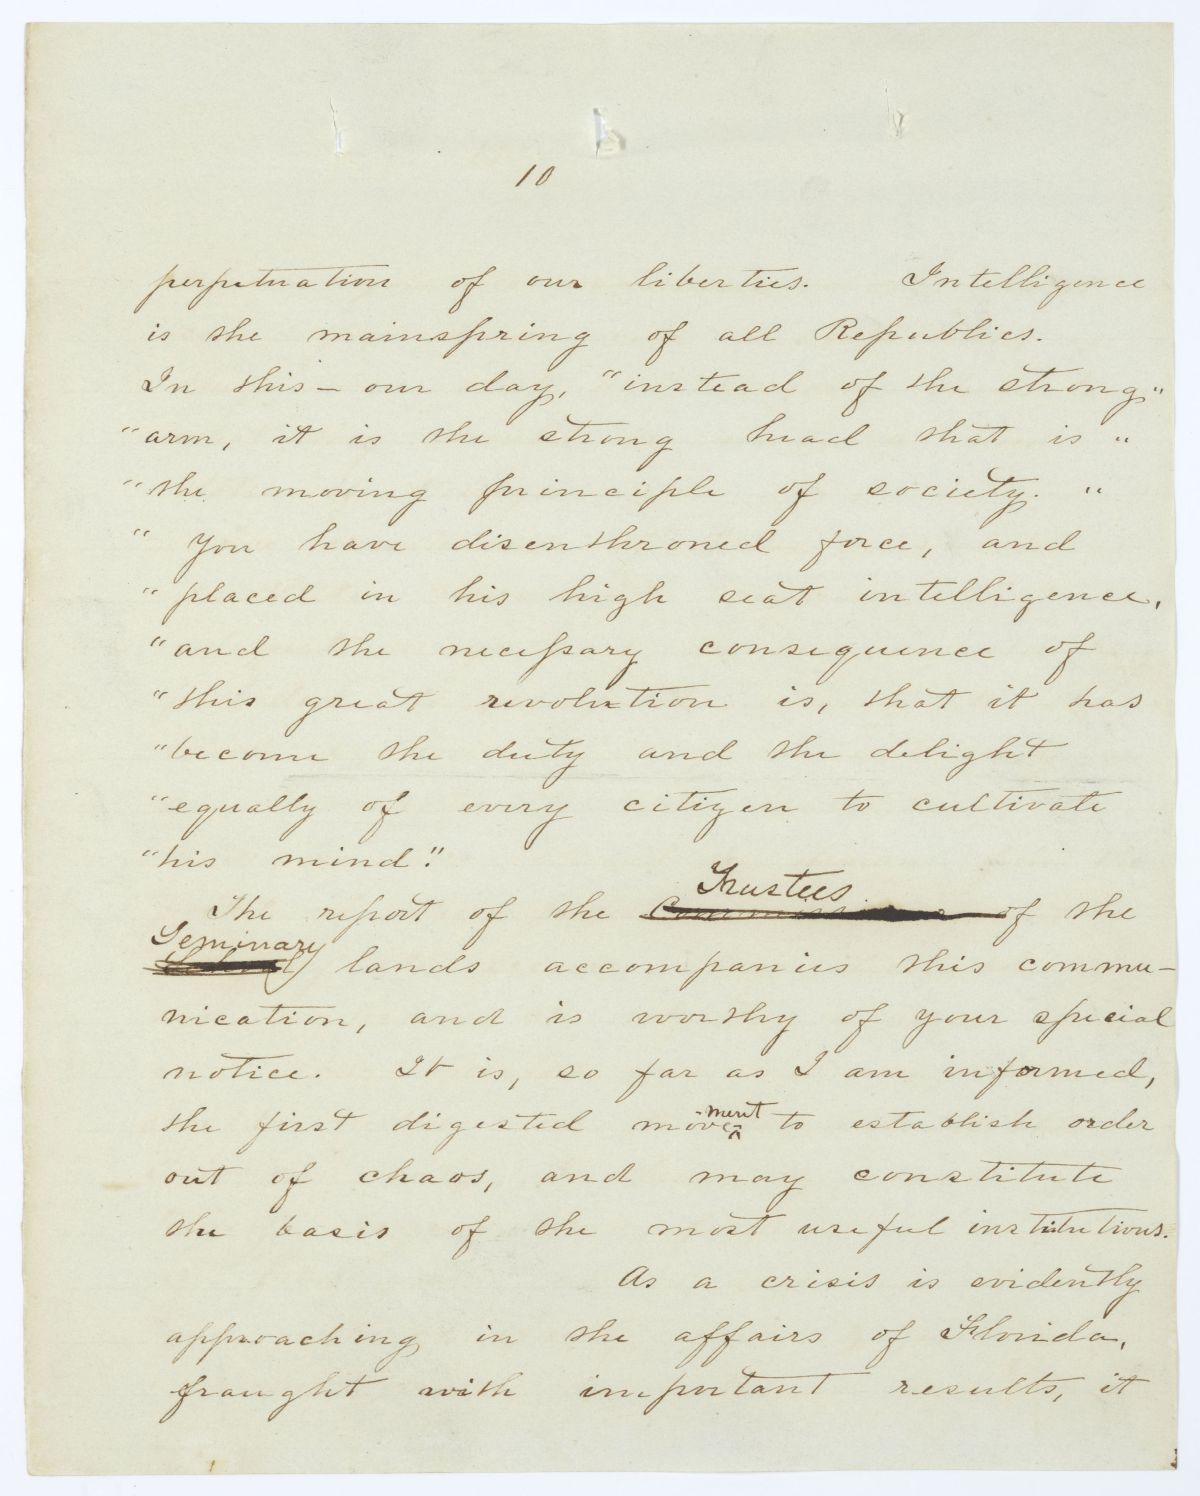 10
perpetuation of our liberties. Intelligence
is the mainspring of all Republics.
In this – our day, "instead of the strong"
"arm, it is the strong head that is "
"the moving principle of society. "
" You have disenthroned force, and
"placed in his high seat intelligence,
"and the necessary consequence of
"this great revolution is, that it has
"become the duty and the delight
"equally of every citizen to cultivate
"his mind."
Trustees
The report of the of the
Seminary
lands accompanies this commu-
nication, and is worthy of your special
notice. It is, so far as I am informed,
-ment
the first digested move^ to establish order
out of chaos, and may constitute
the basis of the most useful institutions.
As a crisis is evidently
approaching in the affairs of Florida,
fraught with important results, it